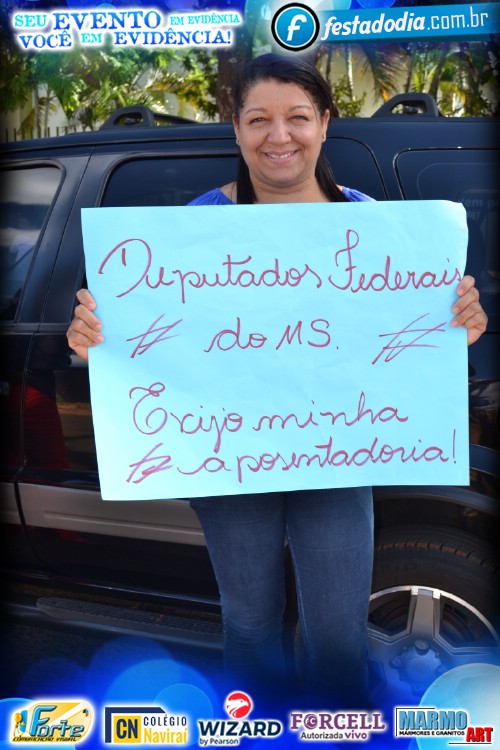 SEU EVENTO EM EVIDÊNCIA
VOCÊ EM EVIDÊNCIA!
f festadodia.com.br
Deputados Federais
# do MS. #
Exijo minha
# aposentadoria!
Forte
COMUNICAÇÃO VISUAL
CN COLÉGIO
Naviraí
WIZARD
by Pearson
FORCELL
Autorizada vivo
MARMO
MÁRMORES E GRANITOS
ART